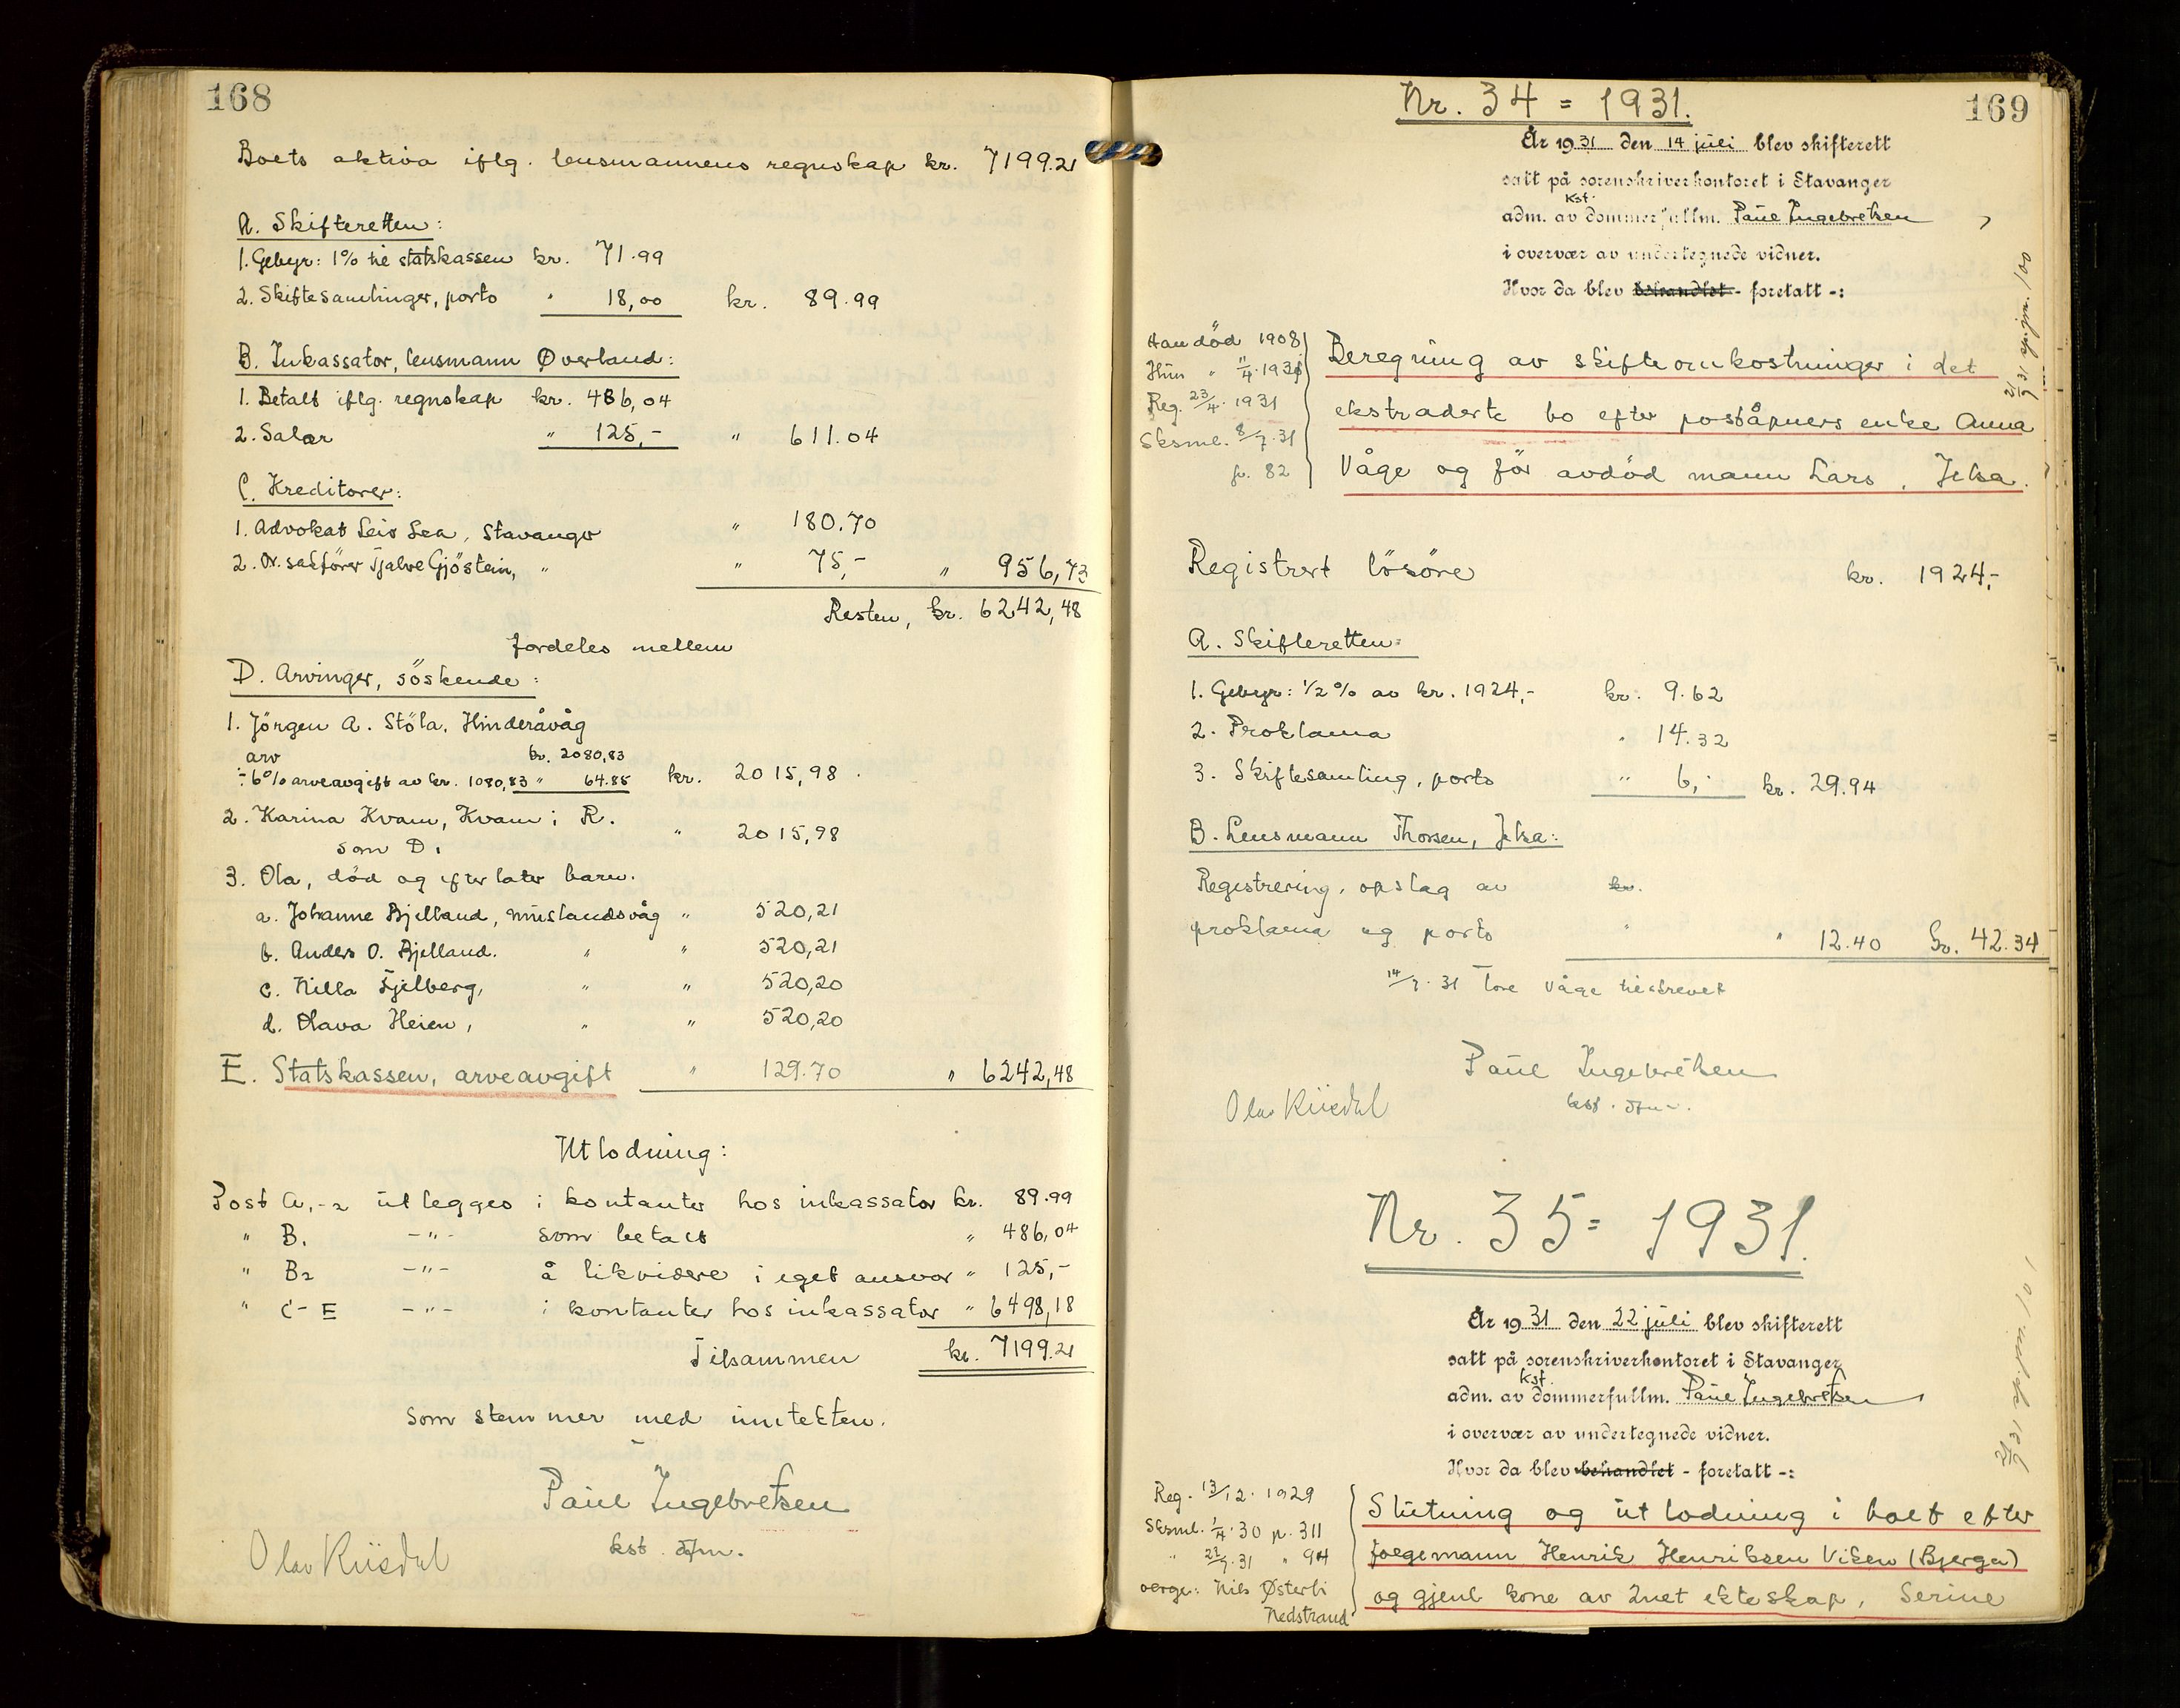 168
Boets aktiva iflg. lensmannens regnskap kr. 7199.21
A. Skifteretten:
1. Gebyr: 1% til statskassen kr. 71.99
2. Skiftesamlinger, porto " 18,00 kr. 89.99
B. Inkassator, lensmann Øverland:
1. Betalt iflg. regnskap kr. 486,04
2. Salær " 125,- " 611.04
C. Kreditorer:
1. Advokat Leiv Lea, Stavanger " 180.70
2. O.r. sakfører Tjalve Gjöstein, " " 75,- " 956,73
Resten, kr. 6242,48
fordeles mellem
D. Arvinger, söskende:
1. Jörgen A. Stöla, Hinderåvåg
arv kr. 2080,83
÷ 6% arveavgift av kr. 1080,83 " 64.85 kr. 2015,98.
2. Karina Kvam, Kvam i R.
som D1 " 2015,98
3. Ola, död og efterlater barn.
a. Johanne Bjelland, Muslandsvåg " 520,21
b. Anders O. Bjelland. " " 520,21
c. Nilla Fjelberg, " " 520,20
d. Olava Heien, " " 520,20
E. Statskassen, arveavgift " 129.70 " 6242,48
Utlodning:
Post A1-2 utlegges i kontanter hos inkassator kr. 89.99
" B1 -"- som betalt " 486,04
" B2 -"- å likvidere i eget ansvar " 125,-
" C-E -"- i kontanter hos inkassator " 6498,18
Tilsammen kr. 7199.21
som stemmer med inntekten.
Paul Ingebretsen
kst. dfm.
Olav Riisdal
169
Nr. 34 = 1931.
År 1931 den 14 juli blev skifterett
satt på sorenskriverkontoret i Stavanger
adm. av kst. dommerfullm. Paul Ingebretsen,
i overvær av undertegnede vidner.
Hvor da blev behandlet - foretatt -:
Han död 1908
Hun " 11/4.1931
Reg. 23/4.1931
Sksml. 8/7.31
p. 82
Beregning av skifteomkostninger i det
ekstraderte bo efter poståpners enke Anna
Våge og för avdöd mann Lars, Jelsa.
Registrert lösöre kr. 1924,-
A. Skifteretten:
1. Gebyr: 1/2% av kr. 1924,- kr. 9.62
2. Proklama " 14.32
3. Skiftesamling, porto " 6,- kr. 29.94
B. Lensmann Thorsen, Jelsa:
Registrering, opslag av kr.
proklama og porto " " 12.40 kr. 42.34
14/7.31 Tore Våge tilskrevet
Paul Ingebretsen
kst. dfm.
Olav Riisdal
Nr. 35 = 1931.
År 1931 den 22 juli blev skifterett
satt på sorenskriverkontoret i Stavanger
adm. av kst. dommerfullm. Paul Ingebretsen,
i overvær av undertegnede vidner.
Hvor da blev behandlet - foretatt -:
Reg. 13/12.1929
Sksml. 1/4.30 p. 311
" 22/7.31 " 94
verge: Nils Østerbi
Nedstrand
Slutning og utlodning i boet efter
forgemann Henrik Henriksen Viken (Bjerga)
og gjenl. kone av 2net ekteskap, Serine